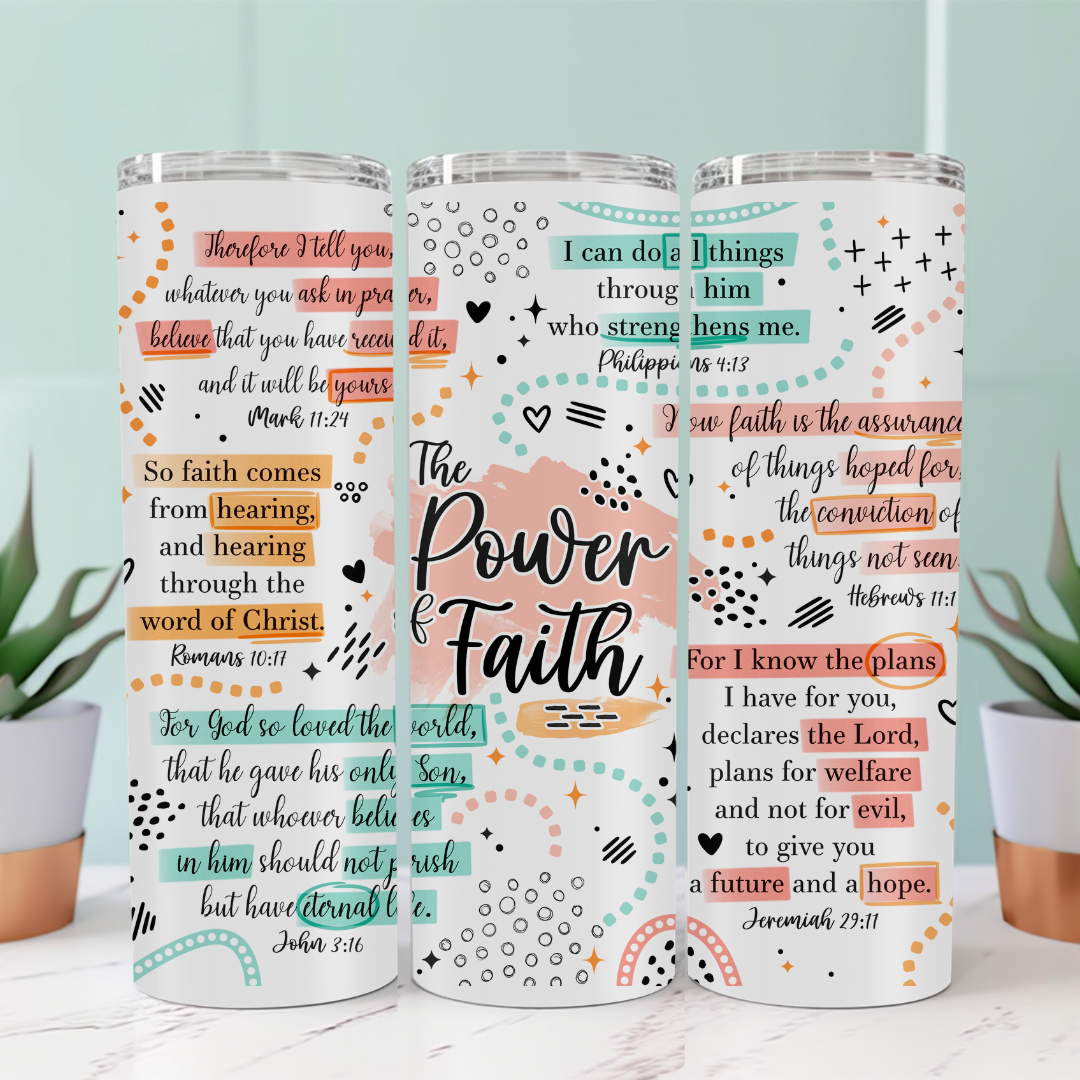 Therefore I tell you,
whatever you ask in prayer,
believe that you have received it,
and it will be yours
Mark 11:24
So faith comes
from hearing,
and hearing
through the
word of Christ.
Romans 10:17
For God so loved the world,
that he gave his only Son,
that whoever believes
in him should not perish
but have eternal life.
John 3:16
I can do all things
through him
who strengthens me.
Philippians 4:13
The
Power
of
Faith
Now faith is the assurance
of things hoped for,
the conviction of
things not seen
Hebrews 11:1
For I know the plans
I have for you,
declares the Lord,
plans for welfare
and not for evil,
to give you
a future and a hope.
Jeremiah 29:11